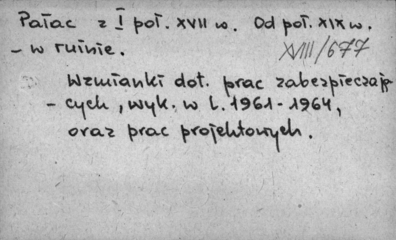 Pałac z I poł. XVII w. Od poł. XIX w.
- w ruinie. XVIII/677
Wzmianki dot. prac zabezpieczają-
- cych, wyk. w l. 1961-1964,
oraz prac projektowych.